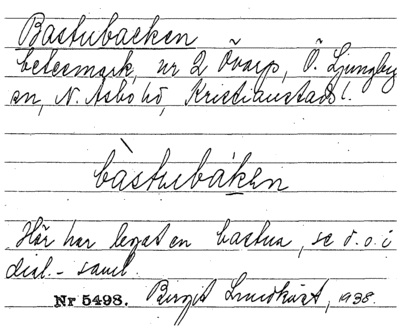 Bastubacken
betesmark, nr 2 Övarp, Ö. Ljungby
sn, N. Åsbo hd, Kristianstads l.
bàstubáken
Här har legat en bastua, se d.o. i
dial.-saml.
Nr 5498. Birgit Lundkvist, 1938.